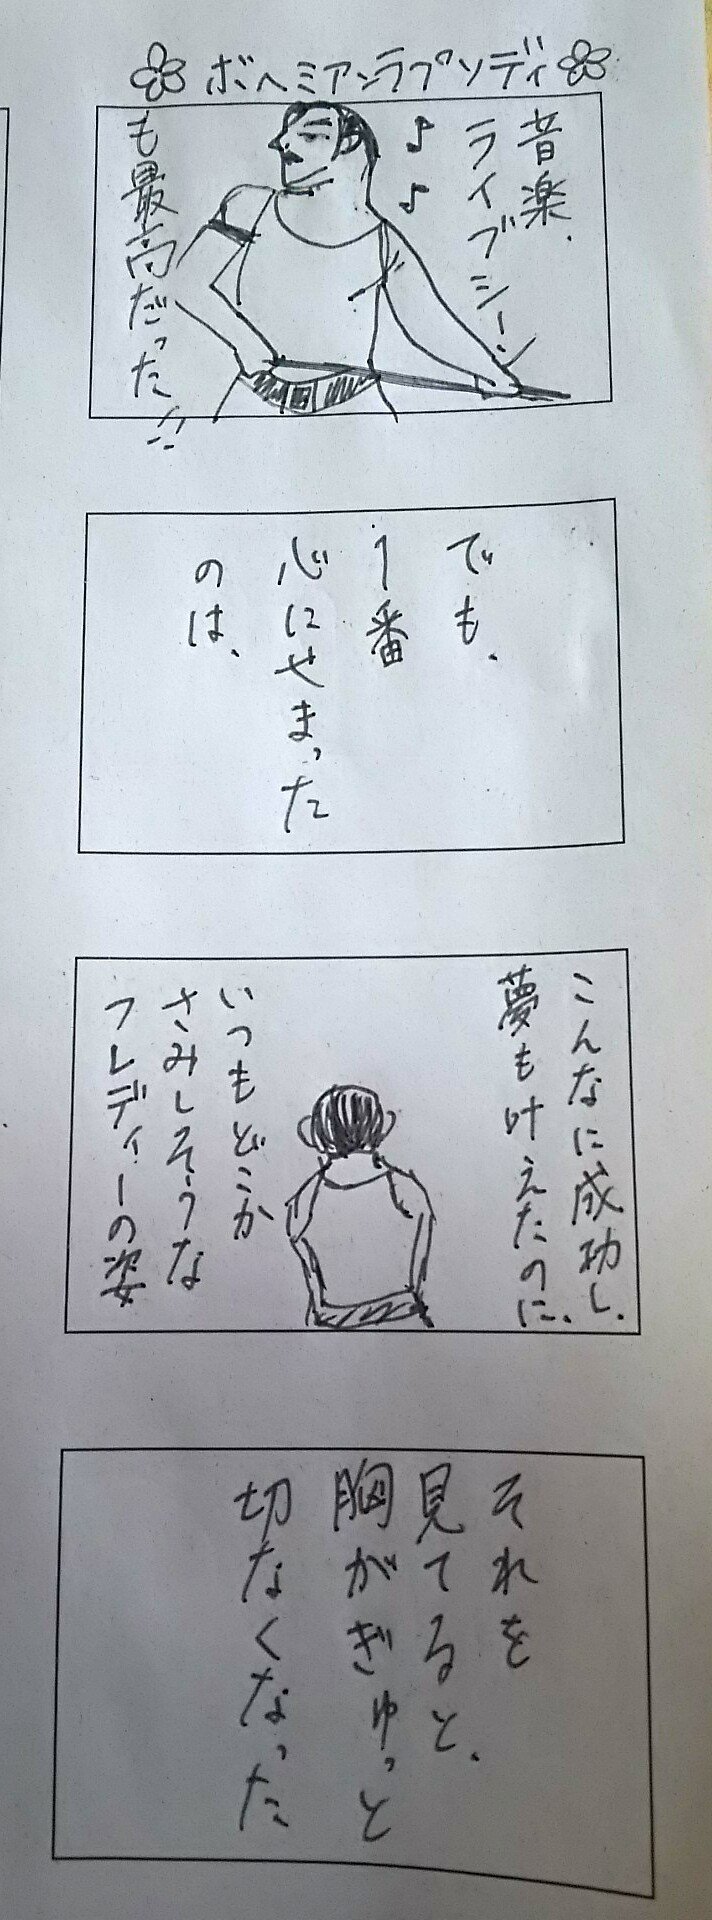 ボヘミアンラプソディ
音楽、
ライブシーン
も最高だった!!
でも、
1番
心にせまった
のは、
こんなに成功し、
夢も叶えたのに、
いつもどこか
さみしそうな
フレディーの姿
それを
見てると、
胸がぎゅっと
切なくなった